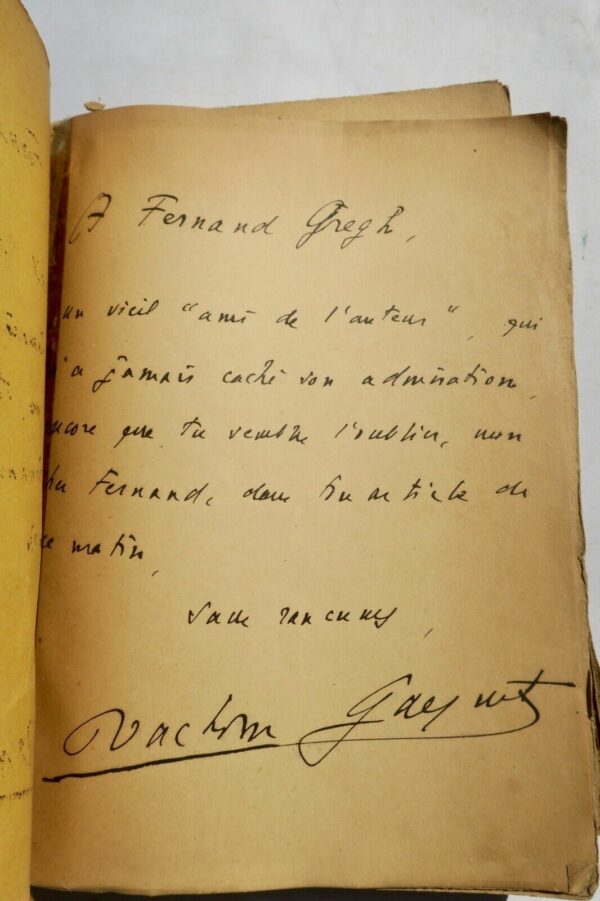 A Fernand Gregh,
un vieil "ami de l'auteur", qui
n'a jamais caché son admiration,
encore que tu semble l'oublier, mon
Fernand, dans ton article de
ce matin,
Sans rancunes,
Joachim Gasquet